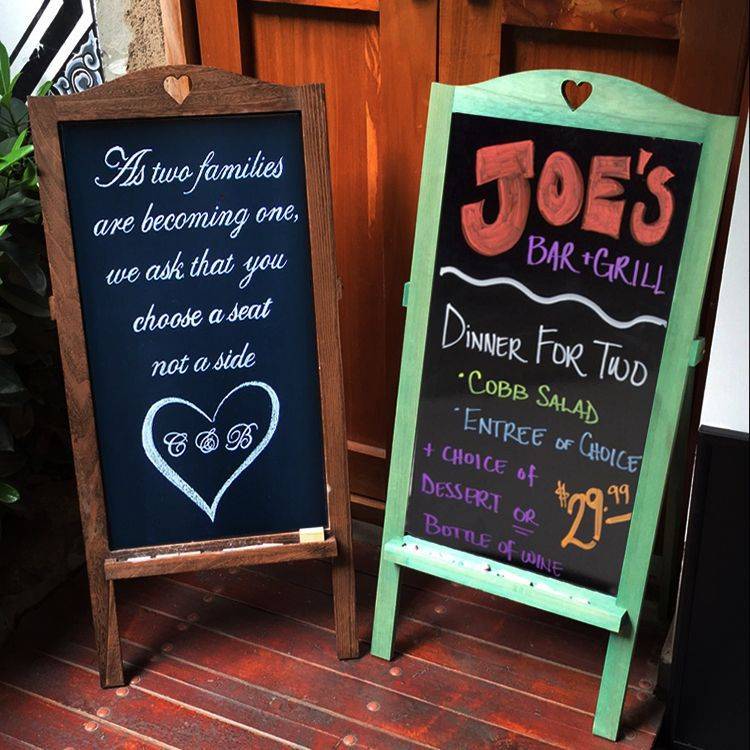 As two families
are becoming one,
we ask that you
choose a seat
not a side
C & B
JOE'S
BAR + GRILL
DINNER FOR TWO
· COBB SALAD
· ENTREE OF CHOICE
+ CHOICE OF
DESSERT OR
BOTTLE OF WINE
$29.99